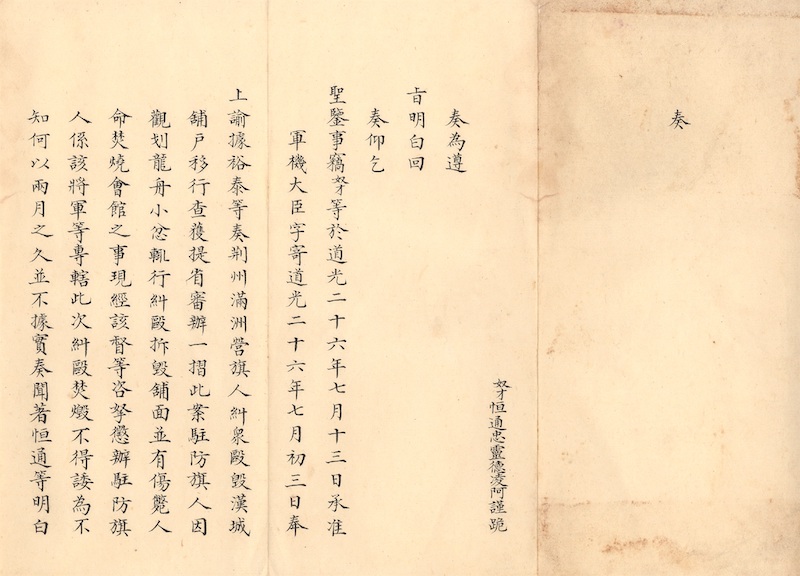 奏
奴才恒通忠靈德凌阿謹跪
奏為遵
旨明白回
奏仰乞
聖鑒事竊奴才等於道光二十六年七月十三日承准
軍機大臣字寄道光二十六年七月初三日奉
上諭據裕泰等奏荆州滿洲營旗人糾衆毆毀漢城
舖戶移行查獲提省審辦一摺此案駐防旗人因
觀划龍舟小忿輒行糾毆拆毀舖面並有傷斃人
命焚燒會館之事現經該督等咨拏懲辦駐防旗
人係該將軍等專轄此次糾毆焚燬不得諉為不
知何以兩月之久並不據實奏聞著恒通等明白